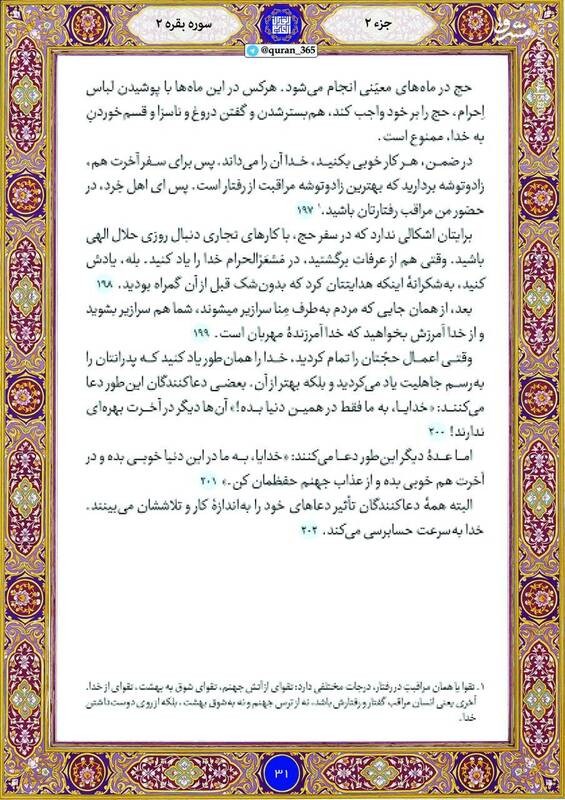 جزء ۲
سوره بقره ۲
@quran_365
حج در ماه‌های معیّنی انجام می‌شود. هرکس در این ماه‌ها با پوشیدن لباس
اِحرام، حج را بر خود واجب کند، هم‌بسترشدن و گفتن دروغ و ناسزا و قسم‌خوردنِ
به خدا، ممنوع است.
در ضمن، هر کار خوبی بکنید، خدا آن را می‌داند. پس برای سفر آخرت هم،
زادوتوشه بردارید که بهترین زادوتوشه مراقبت از رفتار است. پس ای اهل خِرد، در
حضور من مراقب رفتارتان باشید.۱ ۱۹۷
برایتان اشکالی ندارد که در سفر حج، با کارهای تجاری دنبال روزی حلال الهی
باشید. وقتی هم از عرفات برگشتید، در مَشعَرُالحرام خدا را یاد کنید. بله، یادش
کنید، به‌شکرانهٔ اینکه هدایتتان کرد که بدون‌شک قبل از آن گمراه بودید. ۱۹۸
بعد، از همان جایی که مردم به‌طرف مِنا سرازیر میشوند، شما هم سرازیر بشوید
و از خدا آمرزش بخواهید که خدا آمرزندهٔ مهربان است. ۱۹۹
وقتی اعمال حجّتان را تمام کردید، خدا را همان‌طور یاد کنید که پدرانتان را
به‌رسم جاهلیت یاد می‌کردید و بلکه بهتر از آن. بعضی دعاکنندگان این‌طور دعا
می‌کنند: «خدایا، به ما فقط در همین دنیا بده!» آن‌ها دیگر در آخرت بهره‌ای
ندارند! ۲۰۰
اما عدهٔ دیگر این‌طور دعا می‌کنند: «خدایا، به ما در این دنیا خوبی بده و در
آخرت هم خوبی بده و از عذاب جهنم حفظمان کن.» ۲۰۱
البته همهٔ دعاکنندگان تأثیر دعاهای خود را به‌اندازهٔ کار و تلاششان می‌بینند.
خدا به‌سرعت حسابرسی می‌کند. ۲۰۲
۱. تقوا یا همان مراقبتِ در رفتار، درجات مختلفی دارد: تقوای از آتش جهنم، تقوای شوق به بهشت، تقوای از خدا.
آخری یعنی انسان مراقب گفتار و رفتارش باشد، نه از ترس جهنم و نه به‌شوق بهشت، بلکه از روی دوست‌داشتن
خدا.
۳۱